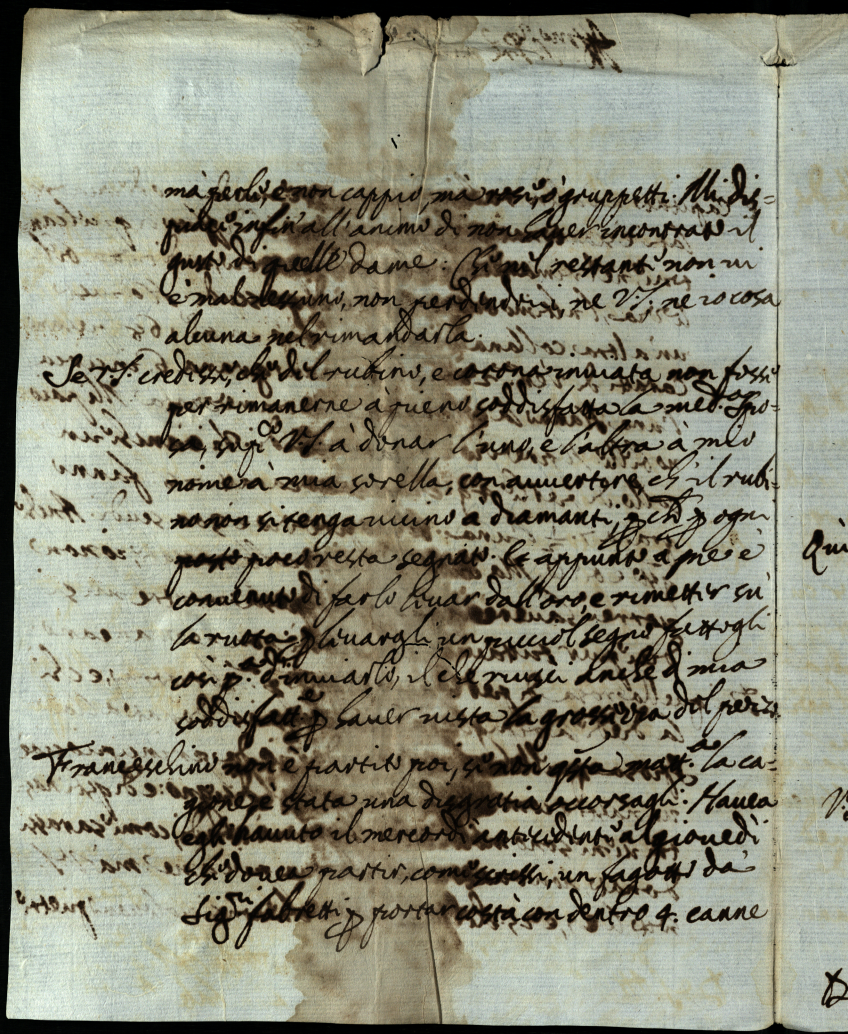 mà perle, e non cappio, mà rosi, ò gruppetti. Mi dis-
piace infin' all'animo di non haver incontrato il
gusto di quelle dame: Chè nel restante non vi
è mal nessuno, non perdendovi ne V.S. ne io cosa
alcuna nel rimandarla.
Se V.S. credesse, che del rubino, e corona inviata non fosse
per rimanerne à pieno soddisfatta la med.ma Spo-
sa, V.S. à donar l'uno, e l'altra à mio
nome à mia sorella, con avvertere che il rubi-
no non si tenga vicino à diamanti, p che p ogni
poco resta segnato. Et appunto a me è
convenuto di farlo levar dall'oro, e rimetter sù
la ruota p levargli un picciol segno fattogli
così p.a d'inviarlo, il che riuscì anche di mia
soddisfatt.e p haver vista la grossezza del pezzo.
Franceschino non è partito poi, se non q.sta matt.a la ca-
gione è stata una disgratia occorsagli. Havea
egli havuto il mercordì antecedente al giovedì
che dovea partir, come scrissi, un fagotto da
Sig.ri Fabretti p portar costà con dentro 4. canne